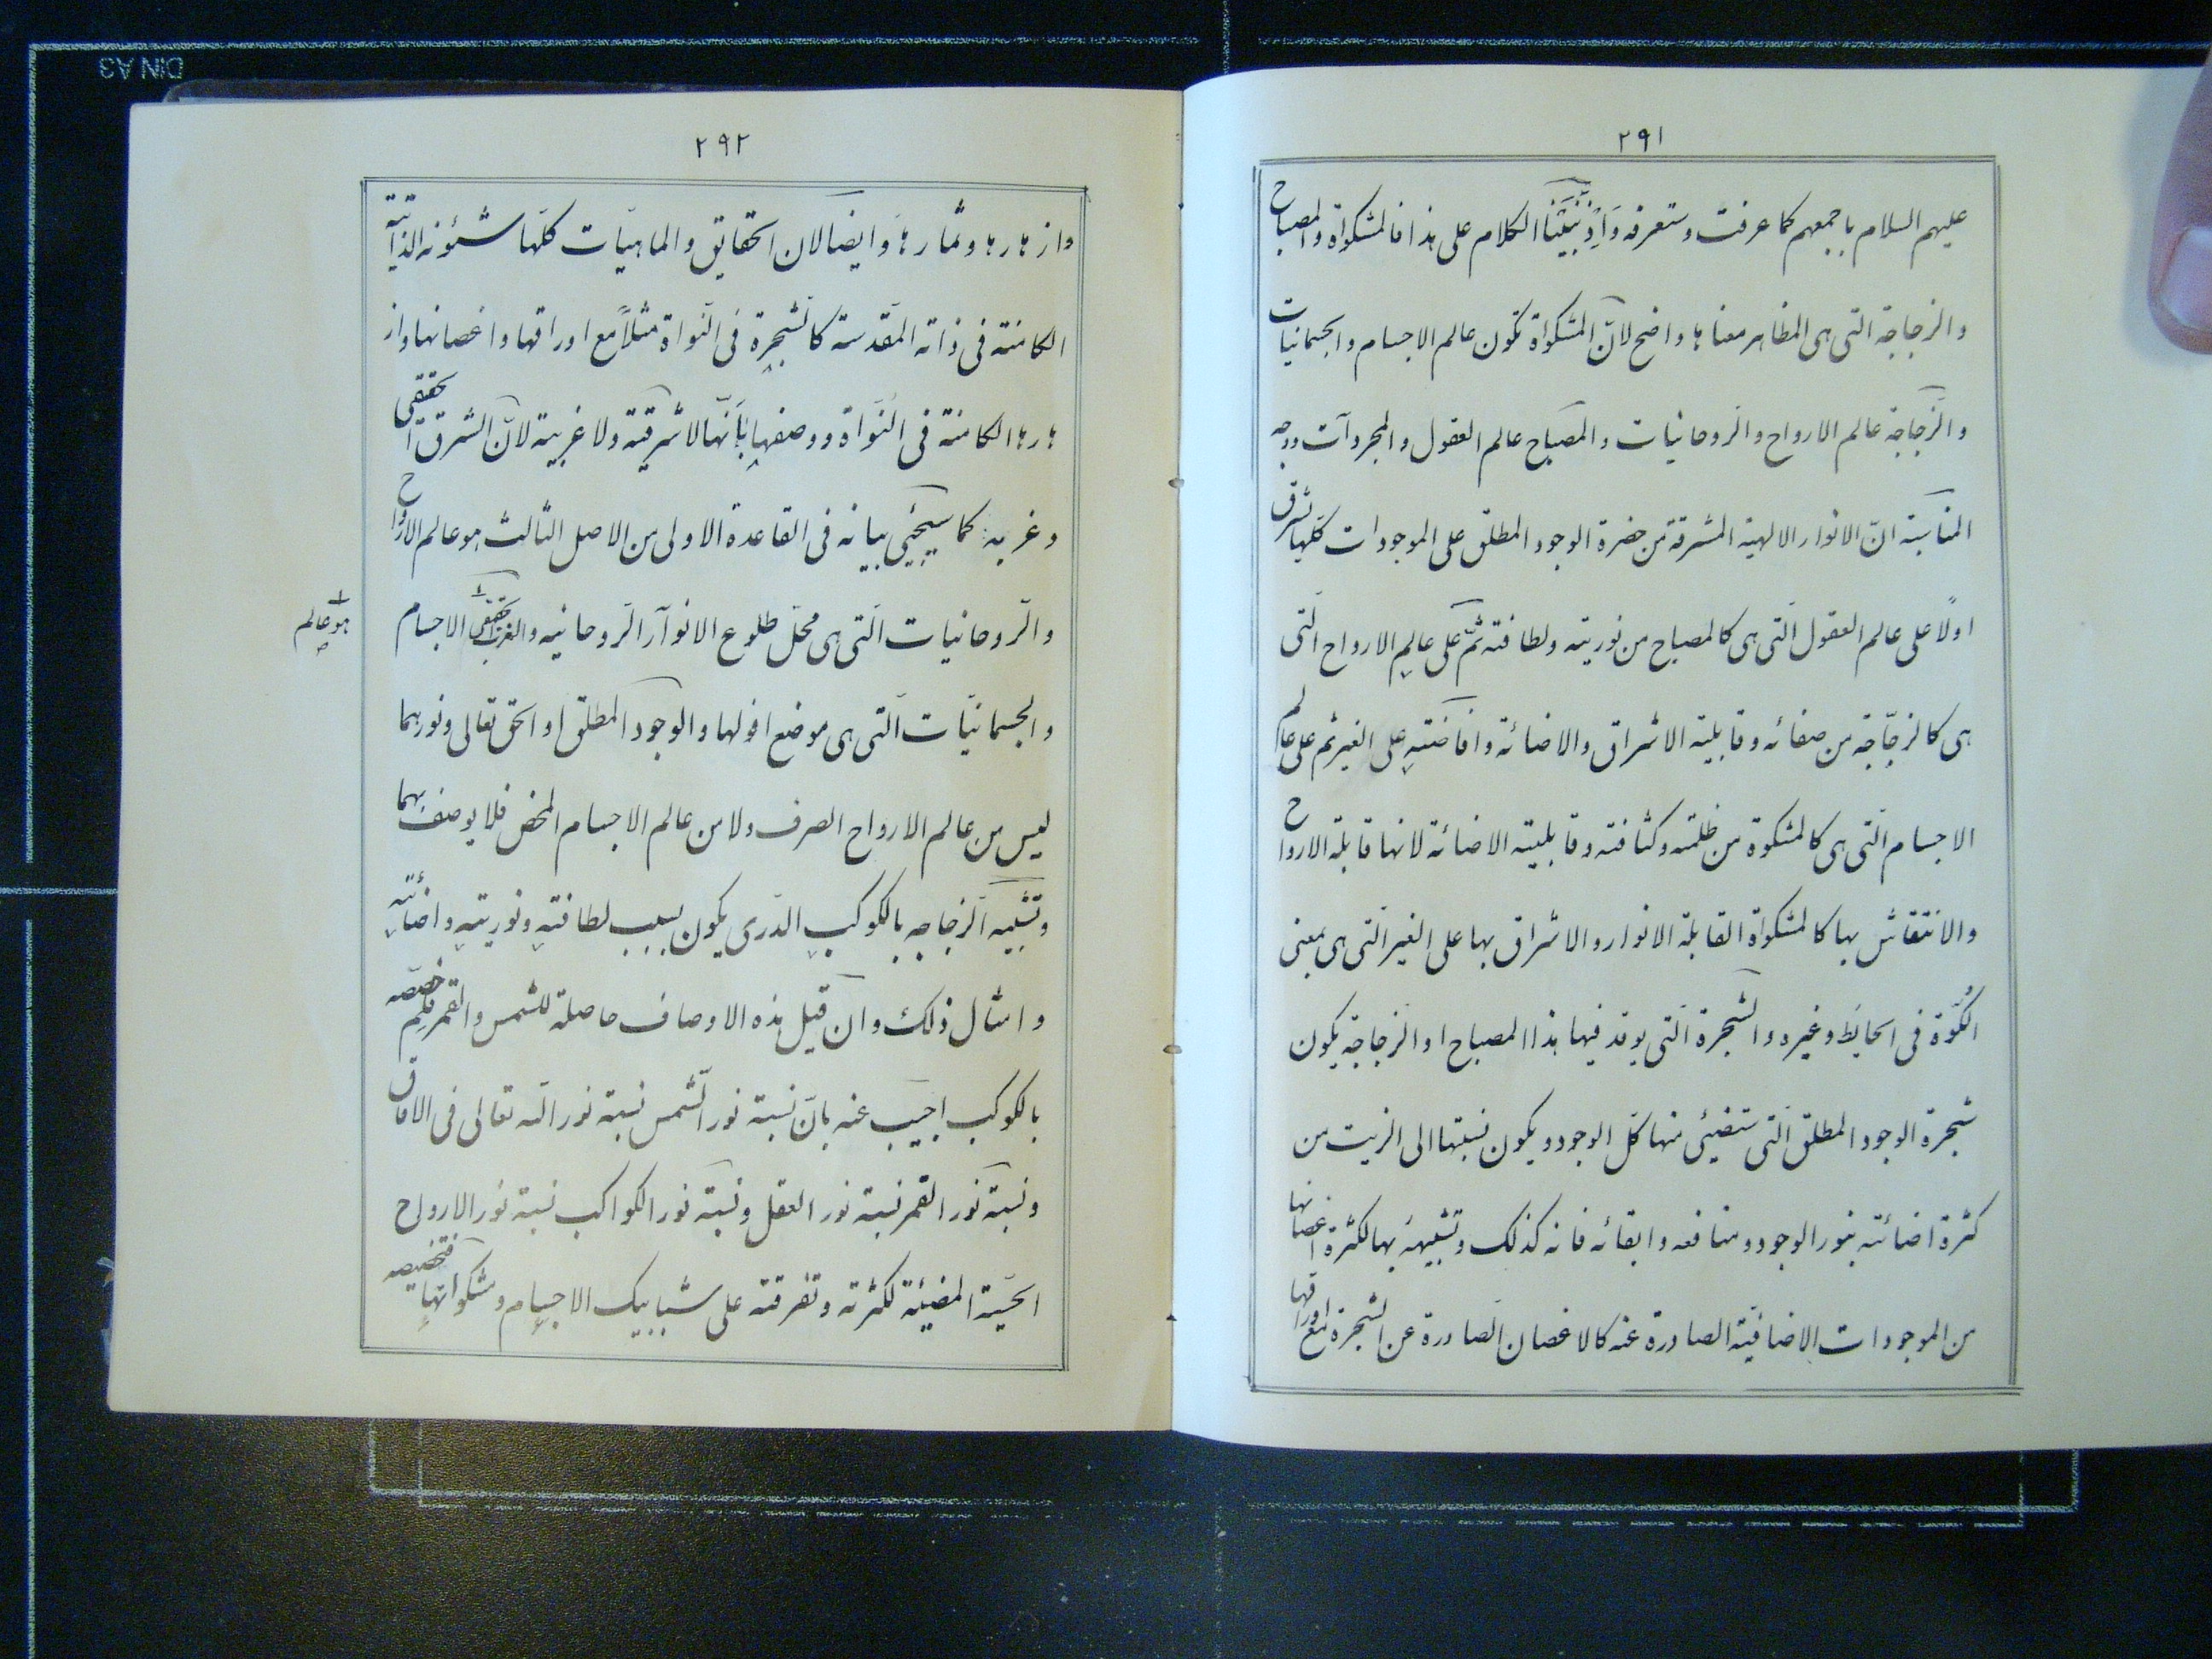 ٢٩١
عليهم السلام باجمعهم كما عرفت وستعرفه وَاِذْ بَيَّنَّا الكلام على هذا فالمشكواة والمصباح
والزجاجة التى هى المظاهر معناها واضح لانّ المشكواة تكون عالم الاجسام والجسمانيات
والزّجاجة عالم الارواح والرّوحانيات والمصباح عالم العقول والمجردآت ووجه
المناسبة انّ الانوار الالهيّة المشرقة من حضرة الوجود المطلق على الموجودات كلّها تشرق
اولًا على عالم العقول الّتى هى كالمصباح من نوريته ولطافته ثمّ على عالم الارواح الّتى
هى كالزجّاجة من صفائه وقابلية الاشراق والاضائة وافاضته على الغير ثم على عالم
الاجسام الّتى هى كالمشكوة من ظلمته وكثافته وقابليته الاضائة لانها قابلة الارواح
والانتقاش بها كالمشكواة القابلة الانوار والاشراق بها على الغير الّتى هى بمعنى
الكُوّة فى الحايط وغيره والشّجرة الّتى يوقد فيها هذا المصباح او الزّجاجة يكون
شجرة الوجود المطلق الّتى ستضيئى منها كلّ الوجود ويكون نسبتها الى الزيت من
كثرة اضائته بنور الوجود ومنافعه وابقائه فانه كذلك وتشبيهه بها لكثرة اغصانها
من الموجودات الاضافيّة الصادرة عنه كالاغصان الصّادرة عن الشجرة مع اوراقها
٢٩٢
وازهارها وثمارها وايضا لان الحقايق والماهيّات كلّها شئونه الذاتيّة
الكامنة فى ذاته المقدسة كالشّجرة فى النّواة مثلاً مع اوراقها واغصانها واز
هارها الكامنة فى النّواة ووصفها بأنّها لا شرقيّة ولا غربية لانّ الشرق الحقيقى
وغربه كما سيجيئ بيانه فى القاعدة الاولى من الاصل الثالث هو عالم الارواح
والرّوحانيات الّتى هى محلّ طلوع الانوآر الرّوحانيه والغرب الحقيقى الاجسام
هو عالم
والجسمانيّات الّتى هى موضع افولها والوجود المطلق او الحق تعالى ونورهما
ليس من عالم الارواح الصرف ولا من عالم الاجسام المحض فلا يوصف بهما
وتشبيه الزّجاجه بالكوكب الدّرى يكون بسبب لطافته ونوريته واضائته
وامثال ذلك وان قيل هذه الاوصاف حاصلة للشمس والقمر فلِم خصّصه
بالكوكب اجيب عنه بانّ نسبة نور الشّمس نسبة نور الله تعالى فى الافاق
ونسبة نور القمر نسبة نور العقل ونسبة نور الكواكب نسبة نور الارواح
الحسّية المضيئة لكثرته وتفرقته على شبابيك الاجسام ومشكواتها فتخصيصه